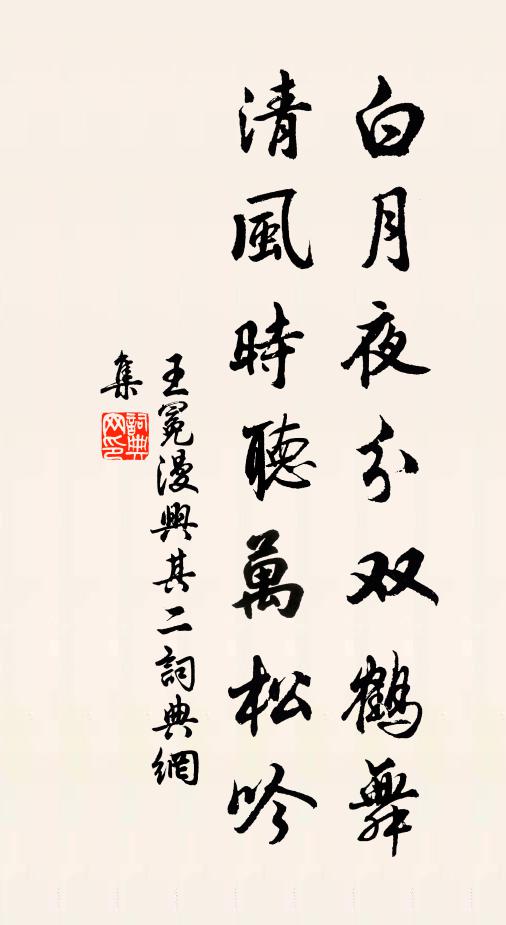 白月夜分双鶴舞
清風時聽萬松吟
王冕漫興其二詞典網
集
詞典
网印